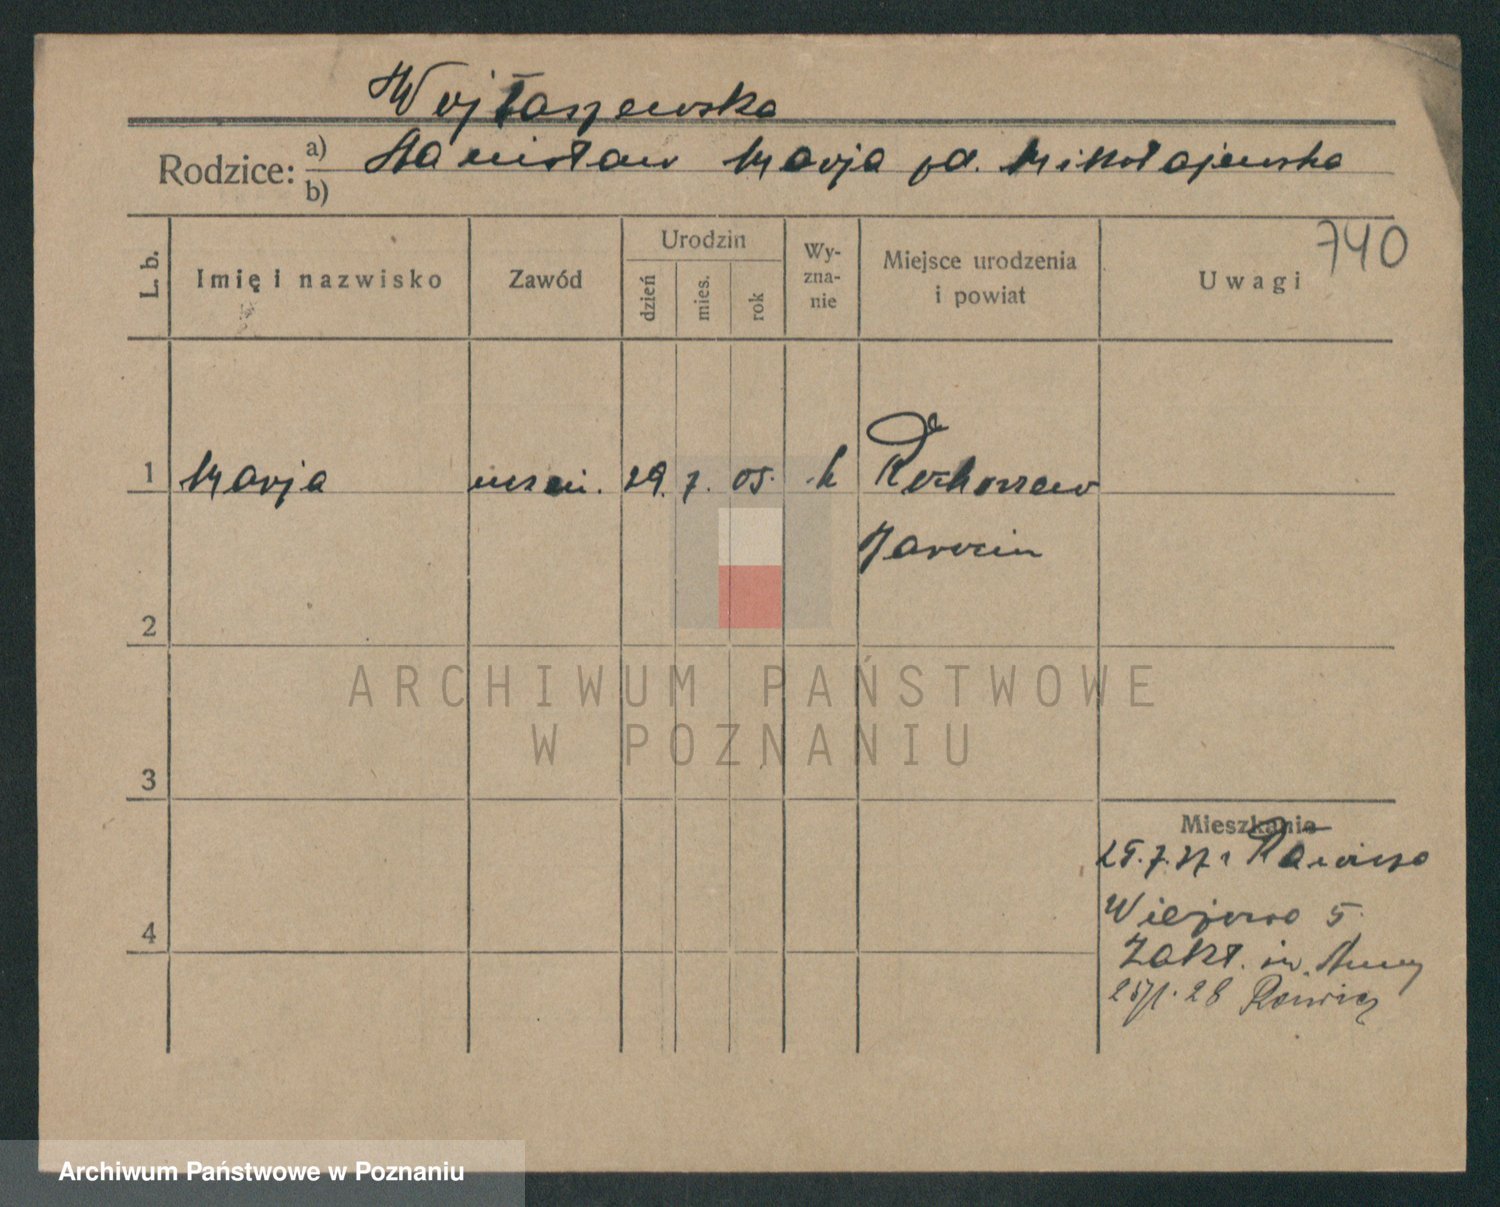 Wojtaszewska
Rodzice: a) b) Stanisław Marja zd. Mikołajewska
740
L. b. Imię i nazwisko Zawód Urodzin dzień mies. rok Wy-zna-nie Miejsce urodzenia i powiat Uwagi
1 Marja uczen. 29. 7. 05. k
Jarocin
2
3
Mieszkanie
z Rawicza
5
4
Zakł. św. Anny
28 Rawicz
ARCHIWUM PAŃSTWOWE
W POZNANIU
Archiwum Państwowe w Poznaniu